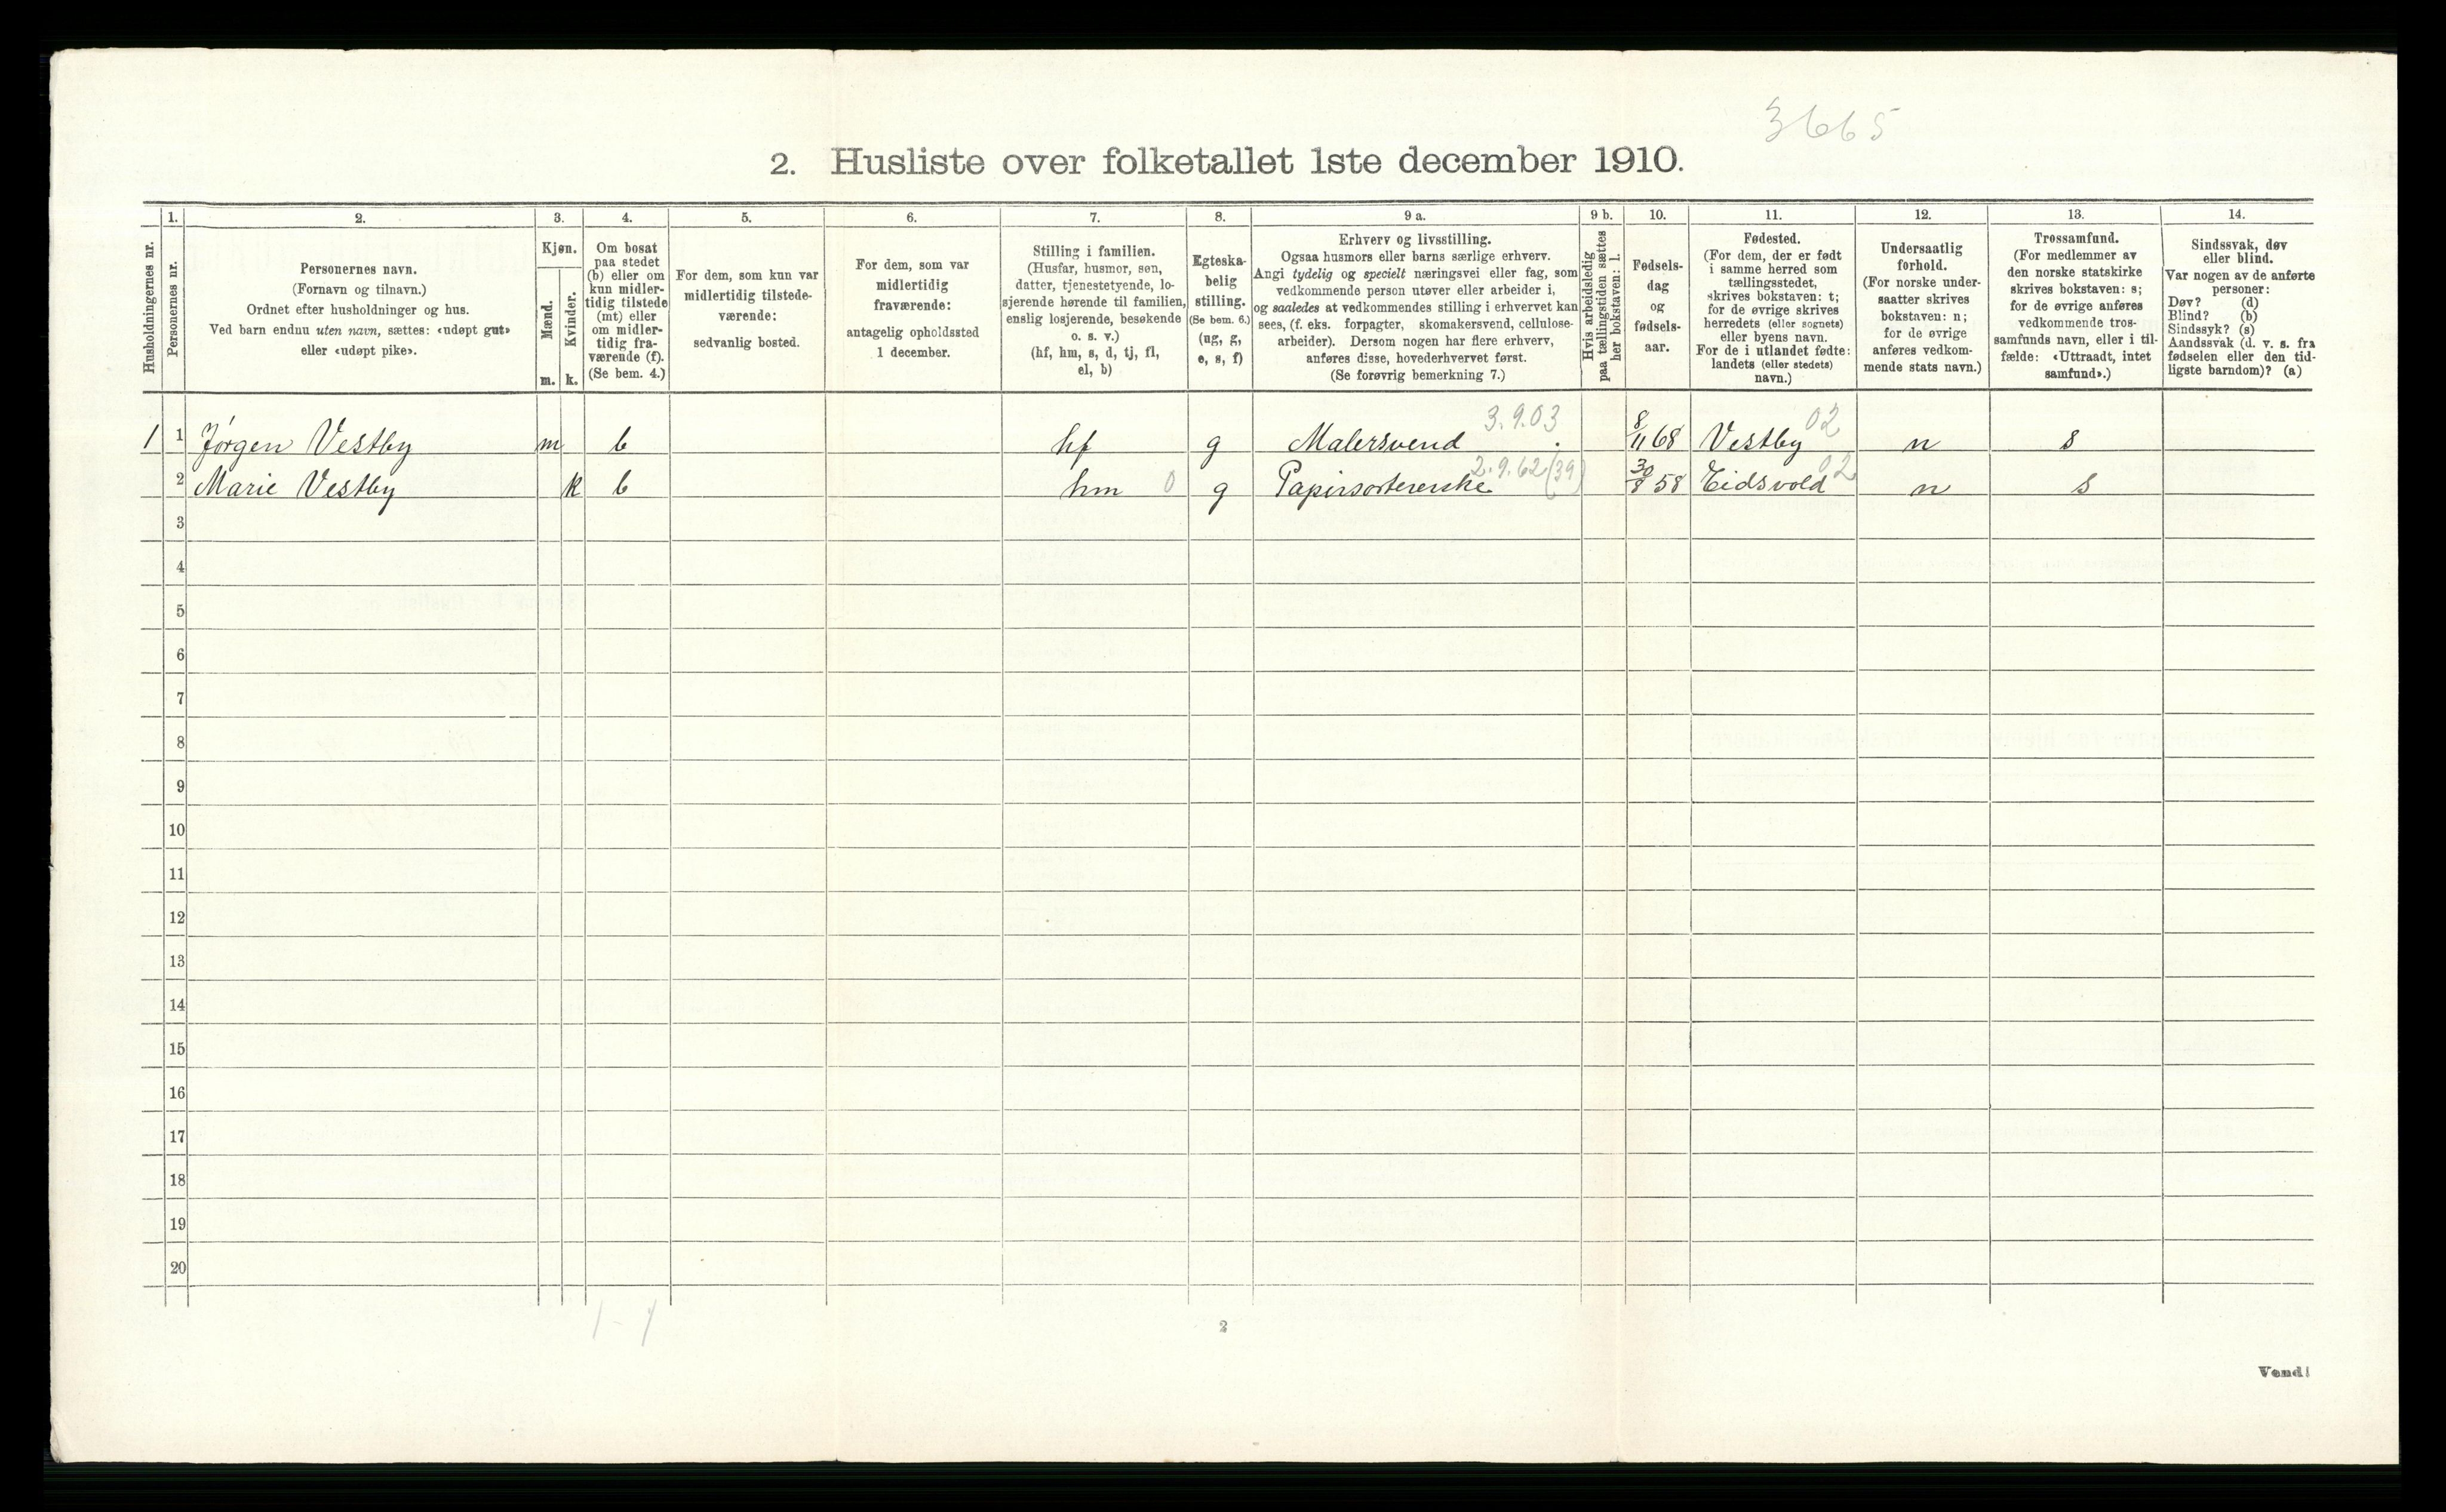 3665
2. Husliste over folketallet 1ste december 1910.
Husholdningernes nr.
1.
Personernes nr.
2.
Personernes navn.
(Fornavn og tilnavn.)
Ordnet efter husholdninger og hus.
Ved barn endnu uten navn, sættes: «udøpt gut»
eller «udøpt pike».
3.
Kjøn.
Mænd.
m.
Kvinder.
k.
4.
Om bosat
paa stedet
(b) eller om
kun midler-
tidig tilstede
(mt) eller
om midler-
tidig fra-
værende (f).
(Se bem. 4.)
5.
For dem, som kun var
midlertidig tilstede-
værende:
sedvanlig bosted.
6.
For dem, som var
midlertidig
fraværende:
antagelig opholdssted
1 december.
7.
Stilling i familien.
(Husfar, husmor, søn,
datter, tjenestetyende, lo-
sjerende hørende til familien,
enslig losjerende, besøkende
o. s. v.)
(hf, hm, s, d, tj, fl,
el, b)
8.
Egteska-
belig
stilling.
(Se bem. 6.)
(ug, g,
e, s, f)
9 a.
Erhverv og livsstilling.
Ogsaa husmors eller barns særlige erhverv.
Angi tydelig og specielt næringsvei eller fag, som
vedkommende person utøver eller arbeider i,
og saaledes at vedkommendes stilling i erhvervet kan
sees, (f. eks. forpagter, skomakersvend, cellulose-
arbeider). Dersom nogen har flere erhverv,
anføres disse, hovederhvervet først.
(Se forøvrig bemerkning 7.)
9 b.
Hvis arbeidsledig
paa tællingstiden sættes
her bokstaven: l.
10.
Fødsels-
dag
og
fødsels-
aar.
11.
Fødested.
(For dem, der er født
i samme herred som
tællingsstedet,
skrives bokstaven: t;
for de øvrige skrives
herredets (eller sognets)
eller byens navn.
For de i utlandet fødte:
landets (eller stedets)
navn.)
12.
Undersaatlig
forhold.
(For norske under-
saatter skrives
bokstaven: n;
for de øvrige
anføres vedkom-
mende stats navn.)
13.
Trossamfund.
(For medlemmer av
den norske statskirke
skrives bokstaven: s;
for de øvrige anføres
vedkommende tros-
samfunds navn, eller i til-
fælde: «Uttraadt, intet
samfund».)
14.
Sindssvak, døv
eller blind.
Var nogen av de anførte
personer:
Døv? (d)
Blind? (b)
Sindssyk? (s)
Aandssvak (d. v. s. fra
fødselen eller den tid-
ligste barndom)? (a)
1 1 Jørgen Vestby m b hf g Malersvend 3.9.03 8/11 68 Vestby 02 n s
2 Marie Vestby k b hm 0 g Papirsortererske 2.9.62 (39) 30/8 58 Eidsvold 02 n s
3
4
5
6
7
8
9
10
11
12
13
14
15
16
17
18
19
20
1 - 1
2
Vend!